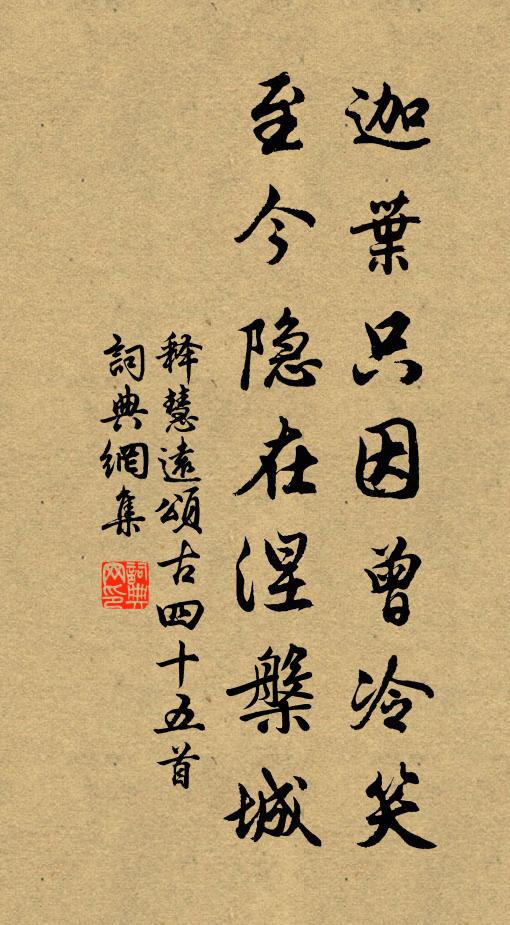 迦葉只因曾冷笑
至今隐在涅槃城
释慧遠頌古四十五首
詞典網集
詞典網印